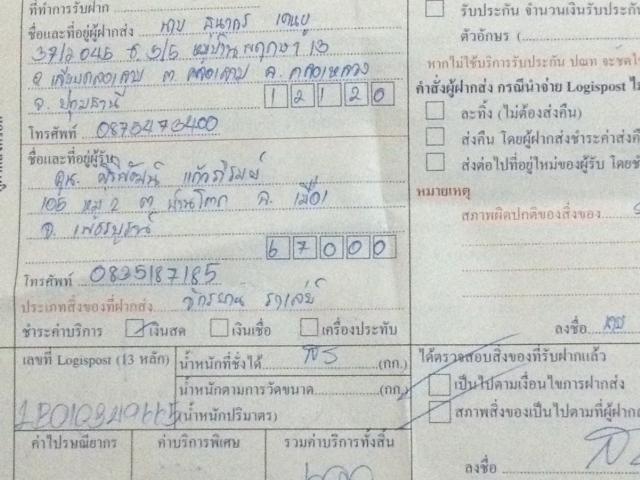 ที่ทำการรับฝาก
ชื่อและที่อยู่ผู้ฝากส่ง นาย ธนากร
37/2045 ซ.5/5 หมู่บ้านพฤกษา 13
ถ.เลียบคลองสาม ต.คลองสาม อ.คลองหลวง
จ.ปทุมธานี 12120
โทรศัพท์ 0875473400
ชื่อและที่อยู่ผู้รับ
คุณ แก้วภิรมย์
105 หมู่ 2 ต.บ้านโตก อ.เมือง
จ.เพชรบูรณ์
67000
โทรศัพท์ 0835187185
ประเภทสิ่งของที่ฝากส่ง จักรยาน
ชำระค่าบริการ เงินสด เงินเชื่อ เครื่องประทับ
เลขที่ Logispost (13 หลัก) น้ำหนักที่ชั่งได้ (กก.)
น้ำหนักตามการวัดขนาด (กก.)
(น้ำหนักปริมาตร)
ค่าไปรษณียากร ค่าบริการพิเศษ รวมค่าบริการทั้งสิ้น
รับประกัน จำนวนเงินรับประกัน
ตัวอักษร (
หากไม่ใช้บริการรับประกัน ปณท จะชดใช้
คำสั่งผู้ฝากส่ง กรณีนำจ่าย Logispost ไม่
ละทิ้ง (ไม่ต้องส่งคืน)
ส่งคืน โดยผู้ฝากส่งชำระค่าส่งคืน
ส่งต่อไปที่อยู่ใหม่ของผู้รับ โดย
หมายเหตุ
สภาพผิดปกติของสิ่งของ
ลงชื่อ
ได้ตรวจสอบสิ่งของที่รับฝากแล้ว
เป็นไปตามเงื่อนไขการฝากส่ง
สภาพสิ่งของเป็นไปตามที่ผู้ฝาก
ลงชื่อ